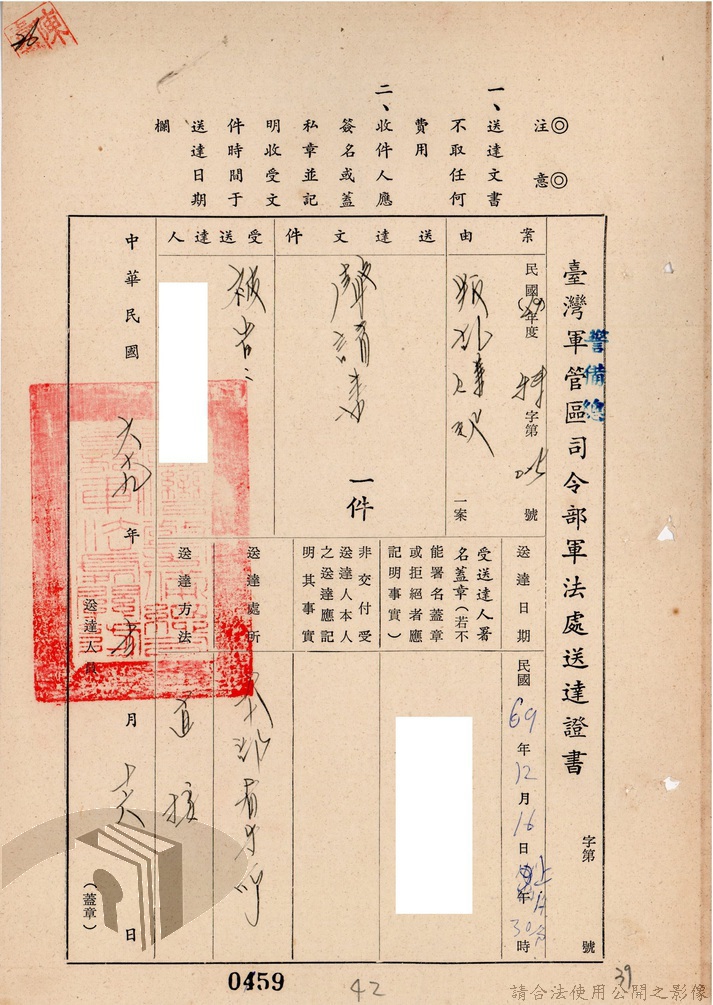 ◎注意◎
一、送達文書
不取任何
費用
二、收件人應
簽名或蓋
私章並記
明收受文
件時間于
送達日期
欄
臺灣軍管區司令部軍法處送達證書
警備總
字第 號
案由
民國 年度
字第 號
叛亂
一案
送達文件
聲請書
一件
受送達人
被告
送達日期
民國69年12月16日上午 時
30分
受送達人署
名蓋章(若不
能署名蓋章
或拒絕者應
記明事實)
非交付受
送達人本人
之送達應記
明其事實
送達處所
本部看守所
送達方法
直接
中華民國六九年 月十六日
送達人
(蓋章)
0459
42
39
請合法使用公開之影像